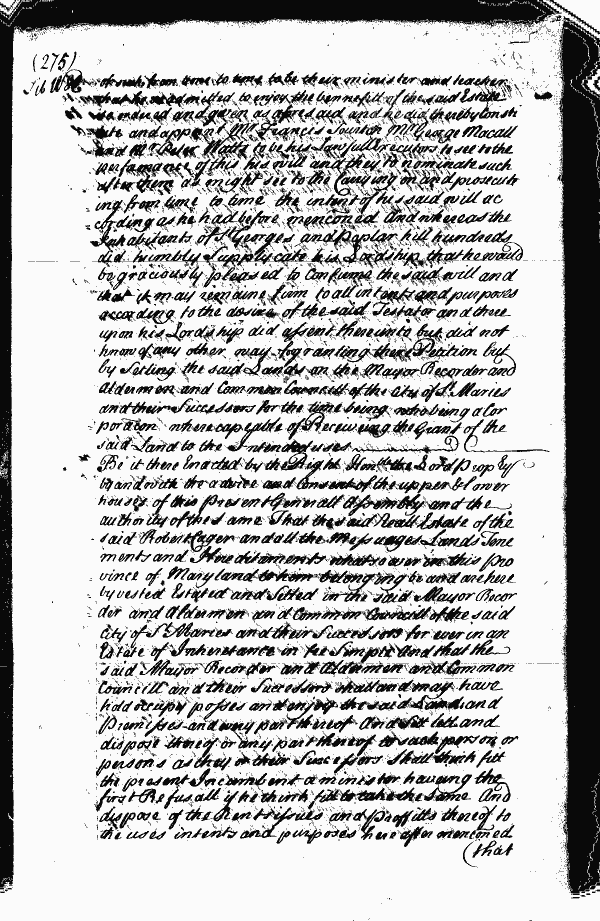 (275)
of such from time to time to be their minister and teacher
that he be admitted to enjoy the bennefitt of the said Estate
so indued and given as aforesaid and he did thereby Consti
tute and appoint Mr. Francis Mr. George Macall
and Mr. Peter Watts to be his Lawfull Executors to see to the
performance of this his will and they to nominate such
after them as might see to the Carrying on and prosecut
ing from time to time the intent of his said will ac
cording as he had before mencioned And whereas the
Inhabitants of St Georges and Poplar hill hundreds
did humbly Supplycate his Lordship that he would
be graciously pleased to Confirme the said will and
that it may remaine firm to all intents and purposes
according to the desire of the said Testator and there
upon his Lordship did assent thereunto but did not
know of any other way for granting there Petition but
by Setling the said Lands on the Mayor Recorder and
Aldermen and Common Councill of the City of St Maries
and their Successors for the time being who being a Cor
poracon where capeable of Receiveing the Grant of the
said Land to the Intended uses
Be it there Enacted by the Right Honble the Lord Propry
by and with the advice and Consent of the upper & lower
houses of this Present Generall Assembly and the
authority of the Same That the said Reall Estate of the
said Robert Cager and all the Messuages Lands Tene
ments and Hereditaments whatsoever in this Pro
vince of Maryland to him belonging be and are here
by vested Estated and Setled in the said Mayor Recor
der and Aldermen and Common Councill of the said
City of St Maries and their Successors for ever in an
Estate of Inheretance in fee Simple And that the
said Mayor Recorder and Aldermen and Common
Councill and their Successors shall and may have
hold occupy posses and enjoy the said Land and
Premisses and every part thereof And Sitt lett and
dispose thereof or any part thereof to such person or
persons as they or their Successors Shall think fitt
the present Incumbent a minister haveing the
first Refusall if he think fitt to take the Same And
dispose of the Rents issues and Proffitts thereof to
the uses intents and purposes here after mencioned
(that